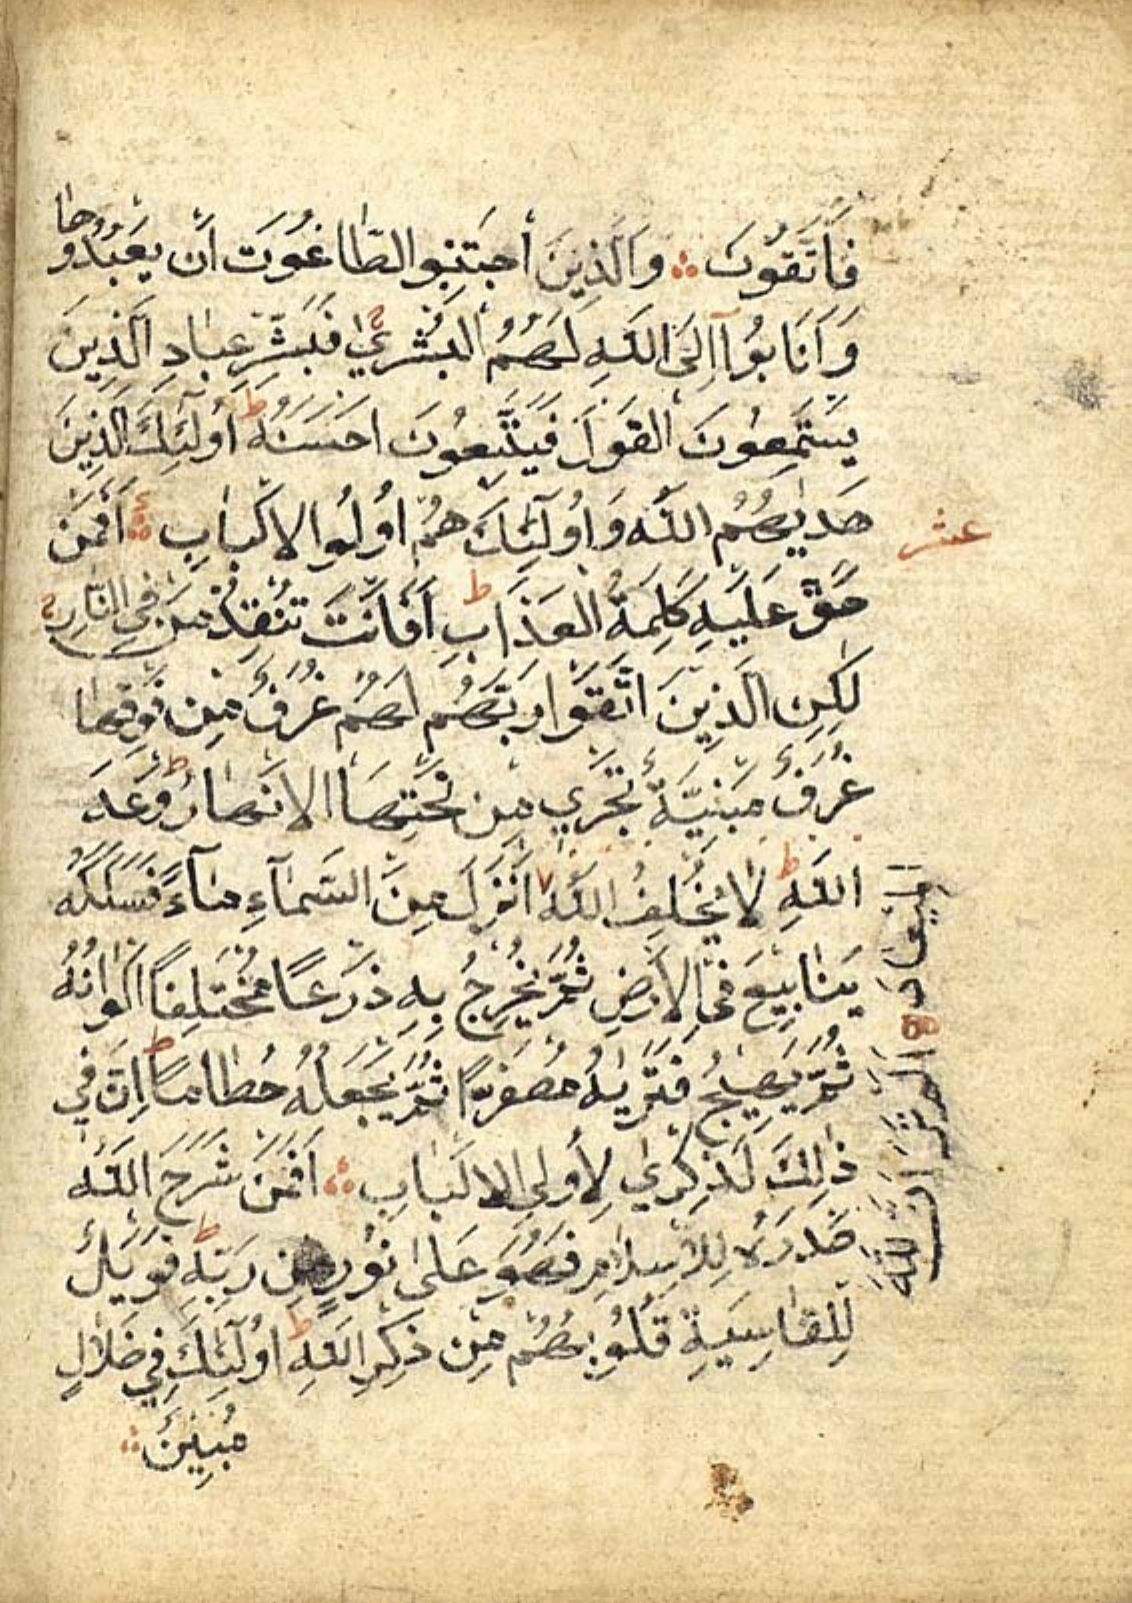 فَاتَّقُونِ ۞ وَالَّذِينَ اجْتَنَبُوا الطَّاغُوتَ اَنْ يَعْبُدُوهَا
وَاَنَابُوآ اِلَى اللّٰهِ لَهُمُ الْبُشْرٰي ج فَبَشِّرْ عِبَادِ الَّذِينَ
يَسْتَمِعُونَ الْقَوْلَ فَيَتَّبِعُونَ اَحْسَنَهُ ط اُولٰٓئِكَ الَّذِينَ
هَدٰيهُمُ اللّٰهُ وَاُولٰٓئِكَ هُمْ اُولُوا الاَلْبَابِ ۞ اَفَمَنْ
عشر
حَقَّ عَلَيْهِ كَلِمَةُ الْعَذَابِ ط اَفَاَنْتَ تُنْقِذُ مَنْ فِي النَّارِ ج
لٰكِنِ الَّذِينَ اتَّقَوْا رَبَّهُمْ لَهُمْ غُرَفٌ مِنْ فَوْقِهَا
غُرَفٌ مَبْنِيَّةٌ تَجْرِي مِنْ تَحْتِهَا الاَنْهَارُ ط وَعْدَ
اللّٰهِ ط لَا يُخْلِفُ اللّٰهُ اَنْزَلَ مِنَ السَّمَآءِ مَآءً فَسَلَكَهُ
الميعاد ۞ الم تر ان الله
يَنَابِيعَ فِي الاَرْضِ ثُمَّ يُخْرِجُ بِهِ زَرْعًا مُخْتَلِفًا اَلْوَانُهُ
ثُمَّ يَهِيجُ فَتَرٰيهُ مُصْفَرًّا ثُمَّ يَجْعَلُهُ حُطَامًا ط اِنَّ فِي
ذٰلِكَ لَذِكْرٰي لِأُولِي الاَلْبَابِ ۞ اَفَمَنْ شَرَحَ اللّٰهُ
صَدْرَهُ لِلاِسْلَامِ فَهُوَ عَلٰى نُورٍ مِنْ رَبِّهِ ط فَوَيْلٌ
لِلْقَاسِيَةِ قُلُوبُهُمْ مِنْ ذِكْرِ اللّٰهِ ط اُولٰٓئِكَ فِي ضَلَالٍ
مُبِينٍ ۞